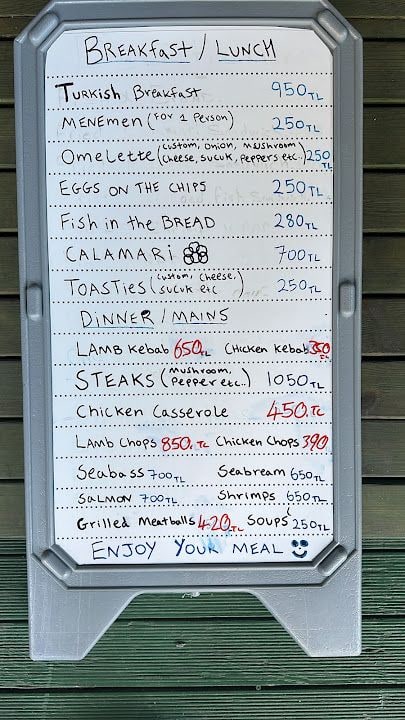 BREAKFAST / LUNCH
TURKISH Breakfast 950TL
MENEMEN (FOR 1 Person) 250TL
Omelette (custom, onion, mushroom cheese, sucuk, peppers etc.) 250TL
EGGS ON THE CHIPS 250TL
Fish in the BREAD 280TL
CALAMARi 700TL
TOASTies (custom, cheese, sucuk etc.) 250TL
DINNER / MAINS
LAMB Kebab 650TL Chicken Kebab 350TL
STEAKS (mushroom, Pepper etc..) 1050TL
Chicken Casserole 450TL
Lamb Chops 850TL Chicken Chops 390
Seabass 700TL Seabream 650TL
SALMON 700TL Shrimps 650TL
Grilled Meatballs 420TL SOUPS 250TL
ENJOY YOUR MEAL